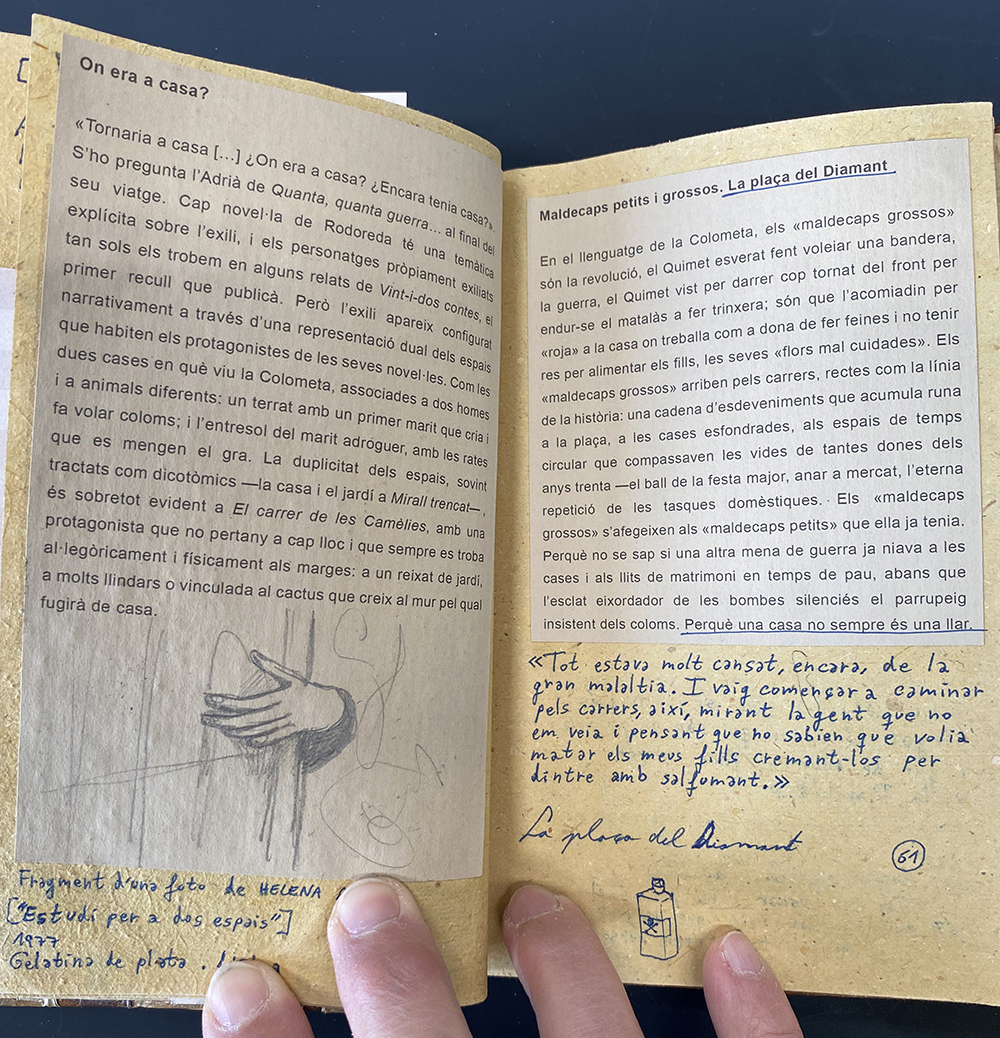 On era a casa?
«Tornaria a casa [...] ¿On era a casa? ¿Encara tenia casa?».
S'ho pregunta l'Adrià de Quanta, quanta guerra... al final del
seu viatge. Cap novel·la de Rodoreda té una temàtica
explícita sobre l'exili, i els personatges pròpiament exiliats
tan sols els trobem en alguns relats de Vint-i-dos contes, el
primer recull que publicà. Però l'exili apareix configurat
narrativament a través d'una representació dual dels espais
que habiten els protagonistes de les seves novel·les. Com les
dues cases en què viu la Colometa, associades a dos homes
i a animals diferents: un terrat amb un primer marit que cria i
fa volar coloms; i l'entresol del marit adroguer, amb les rates
que es mengen el gra. La duplicitat dels espais, sovint
tractats com dicotòmics —la casa i el jardí a Mirall trencat—,
és sobretot evident a El carrer de les Camèlies, amb una
protagonista que no pertany a cap lloc i que sempre es troba
al·legòricament i físicament als marges: a un reixat de jardí,
a molts llindars o vinculada al cactus que creix al mur pel qual
fugirà de casa.
Fragment d'una foto de HELENA
["Estudi per a dos espais"]
1977
Gelatina de plata.
Maldecaps petits i grossos. La plaça del Diamant
En el llenguatge de la Colometa, els «maldecaps grossos»
són la revolució, el Quimet esverat fent voleiar una bandera,
la guerra, el Quimet vist per darrer cop tornat del front per
endur-se el matalàs a fer trinxera; són que l'acomiadin per
«roja» a la casa on treballa com a dona de fer feines i no tenir
res per alimentar els fills, les seves «flors mal cuidades». Els
«maldecaps grossos» arriben pels carrers, rectes com la línia
de la història: una cadena d'esdeveniments que acumula runa
a la plaça, a les cases esfondrades, als espais de temps
circular que compassaven les vides de tantes dones dels
anys trenta —el ball de la festa major, anar a mercat, l'eterna
repetició de les tasques domèstiques. Els «maldecaps
grossos» s'afegeixen als «maldecaps petits» que ella ja tenia.
Perquè no se sap si una altra mena de guerra ja niava a les
cases i als llits de matrimoni en temps de pau, abans que
l'esclat eixordador de les bombes silenciés el parrupeig
insistent dels coloms. Perquè una casa no sempre és una llar.
«Tot estava molt cansat, encara, de la
gran malaltia. I vaig començar a caminar
pels carrers, així, mirant la gent que no
em veia i pensant que no sabien que volia
matar els meus fills cremant-los per
dintre amb salfumant.»
La plaça del Diamant
61